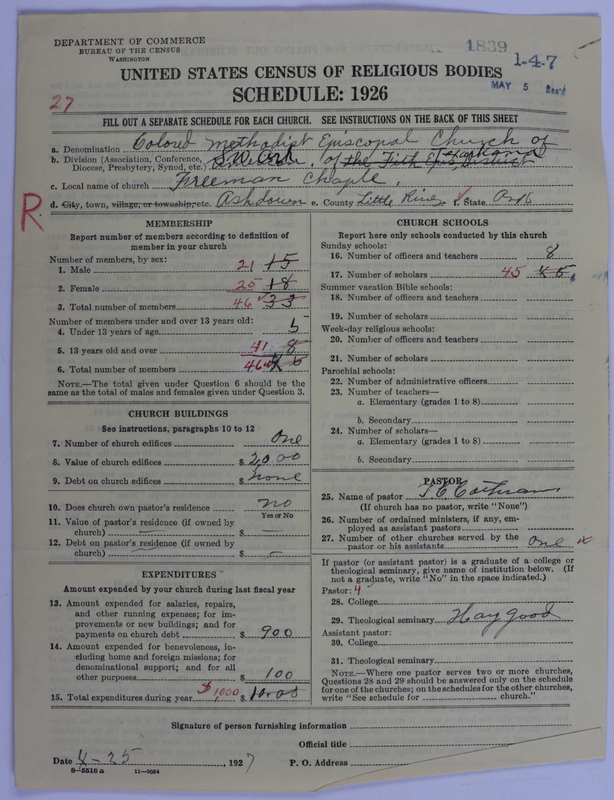 DEPARTMENT OF COMMERCE
BUREAU OF THE CENSUS
WASHINGTON
1839
1-4-7
MAY 5
27
UNITED STATES CENSUS OF RELIGIOUS BODIES
SCHEDULE: 1926
FILL OUT A SEPARATE SCHEDULE FOR EACH CHURCH. SEE INSTRUCTIONS ON THE BACK OF THIS SHEET
a. Denomination Colored Methodist Episcopal Church of
b. Division (Association, Conference, S.W. Ark, of the Fifth Epis. District
Diocese, Presbytery, Synod, etc.)
c. Local name of church Freeman Chaple,
R.
d. City, town, village, or township, etc. Ashdown e. County Little River f. State Ark
MEMBERSHIP
Report number of members according to definition of
member in your church
Number of members, by sex:
1. Male 21 15
2. Female 25 18
3. Total number of members 46 33
Number of members under and over 13 years old:
4. Under 13 years of age 5
5. 13 years old and over 41 8
6. Total number of members 46
NOTE.—The total given under Question 6 should be
same as the total of males and females given under Question 3.
CHURCH BUILDINGS
See instructions, paragraphs 10 to 12
7. Number of church edifices One
8. Value of church edifices $ 2,000
9. Debt on church edifices $ none
10. Does church own pastor's residence no
Yes or No
11. Value of pastor's residence (if owned by
church) $
12. Debt on pastor's residence (if owned by
church) $
EXPENDITURES
Amount expended by your church during last fiscal year
13. Amount expended for salaries, repairs,
and other running expenses; for im-
provements or new buildings; and for
payments on church debt $ 900
14. Amount expended for benevolences, in-
cluding home and foreign missions; for
denominational support; and for all
other purposes $ 100
15. Total expenditures during year $1,000
CHURCH SCHOOLS
Report here only schools conducted by this church
Sunday schools:
16. Number of officers and teachers 8
17. Number of scholars 45
Summer vacation Bible schools:
18. Number of officers and teachers
19. Number of scholars
Week-day religious schools:
20. Number of officers and teachers
21. Number of scholars
Parochial schools:
22. Number of administrative officers
23. Number of teachers—
a. Elementary (grades 1 to 8)
b. Secondary
24. Number of scholars—
a. Elementary (grades 1 to 8)
b. Secondary
PASTOR
25. Name of pastor
(If church has no pastor, write "None")
26. Number of ordained ministers, if any, em-
ployed as assistant pastors
27. Number of other churches served by the
pastor or his assistants One
If pastor (or assistant pastor) is a graduate of a college or
theological seminary, give name of institution below. (If
not a graduate, write "No" in the space indicated.)
Pastor: 4
28. College
29. Theological seminary Haygood
Assistant pastor:
30. College
31. Theological seminary
NOTE.—Where one pastor serves two or more churches,
Questions 28 and 29 should be answered only on the schedule
for one of the churches; on the schedules for the other churches,
write "See schedule for church."
Signature of person furnishing information
Official title
Date 4-25, 1927 P. O. Address
8-5518 a 11-9024